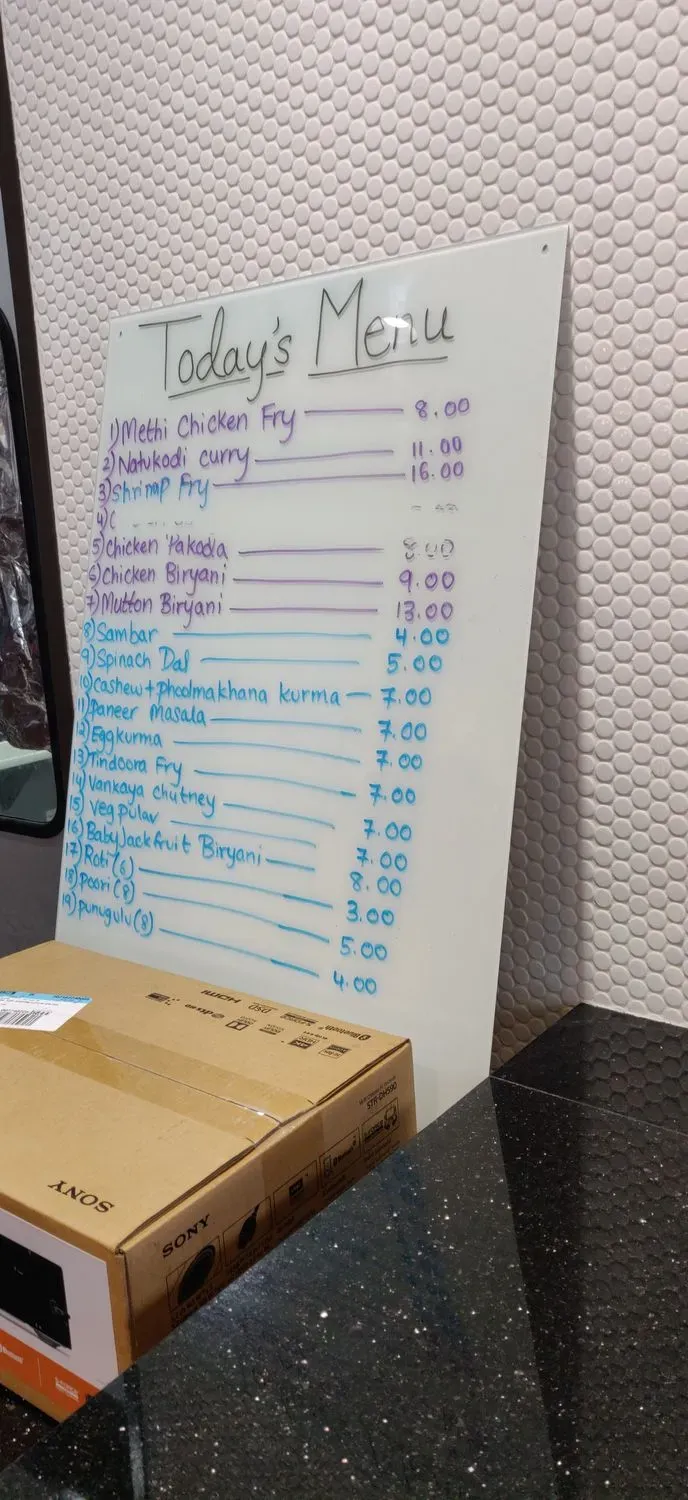 Today's Menu
1) Methi Chicken Fry 8.00
2) Natukodi curry 11.00
3) Shrimp Fry 16.00
4) C
5) Chicken Pakodia 8.00
6) Chicken Biryani 9.00
7) Mutton Biryani 13.00
8) Sambar 4.00
9) Spinach Dal 5.00
10) cashew + phoolmakhana kurma 7.00
11) Paneer Masala 7.00
12) Eggkurma 7.00
13) Tindoora Fry 7.00
14) Vankaya chutney 7.00
15) Veg Pulav 7.00
16) Baby Jackfruit Biryani 8.00
17) Roti (6) 3.00
18) poori (8) 5.00
19) punugulu (8) 4.00
Bluetooth
HDMI
DSD
dts
STR-DH590
SONY
SONY
Bluetooth